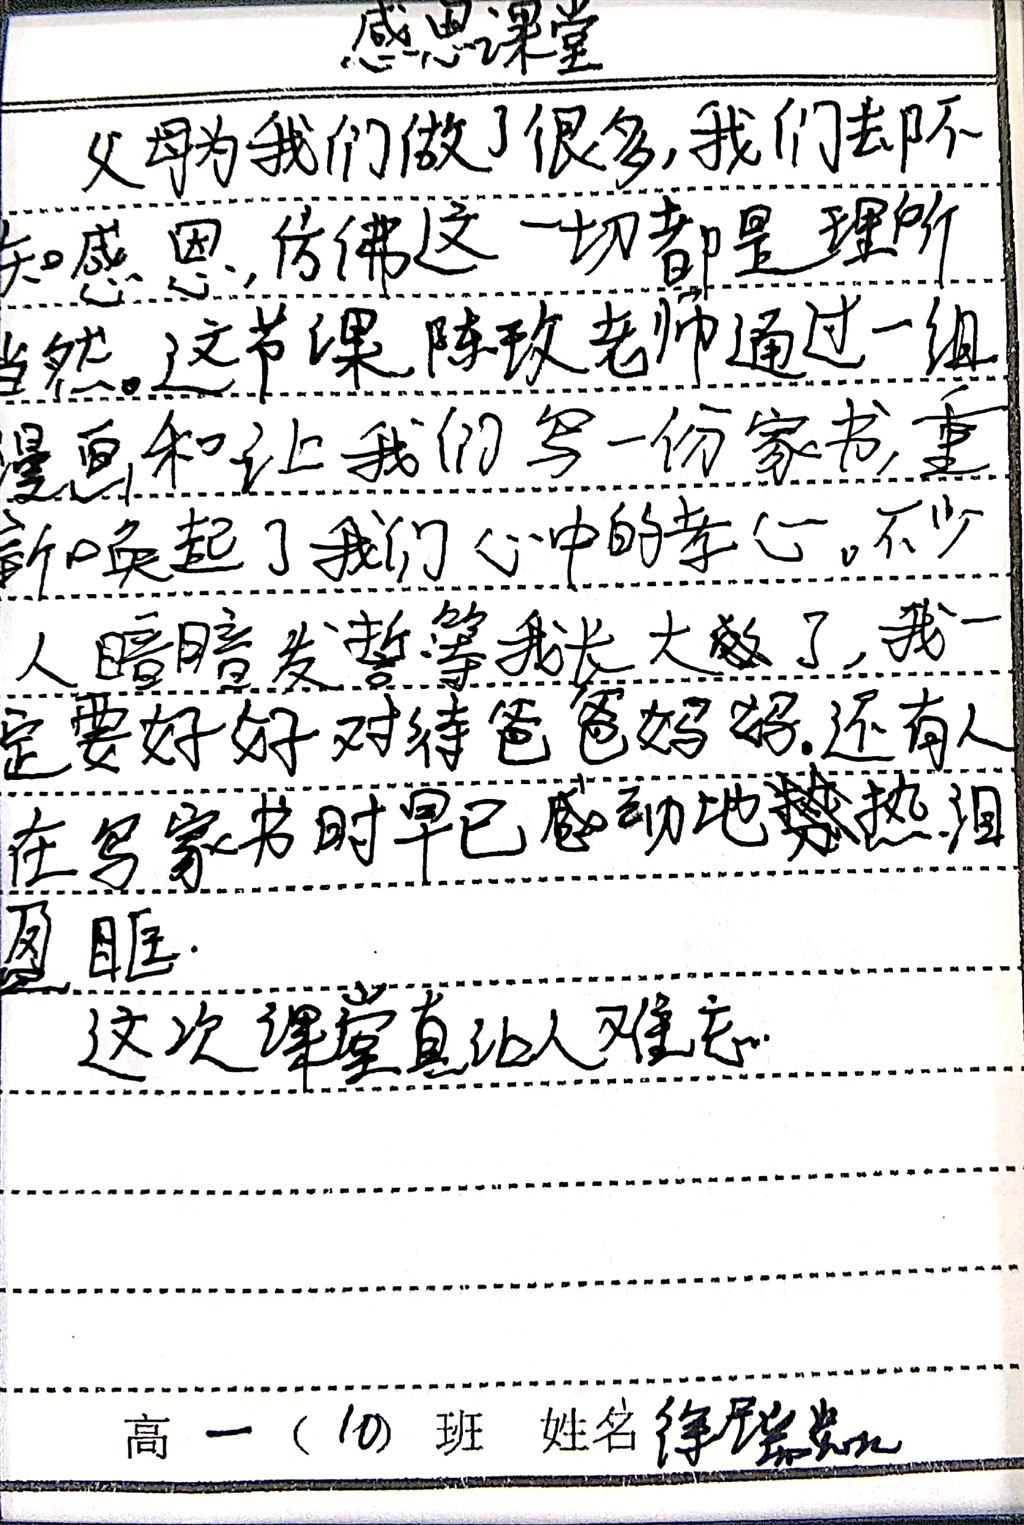 感恩课堂
父母为我们做了很多,我们却不
知感恩,仿佛这一切都是理所
当然。这节课陈玫老师通过一组
漫画和让我们写一份家书,重
新唤起了我们心中的孝心。不少
人暗暗发誓等我长大了,我一
定要好好对待爸爸妈妈.还有人
在写家书时早已感动地热泪
盈眶.
这次课堂真让人难忘.
高一(10)班 姓名徐